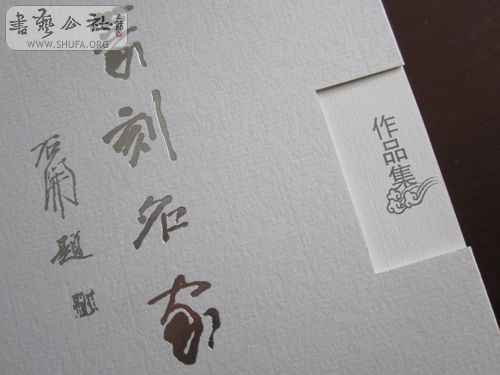 書藝公社
WWW.SHUFA.ORG
篆刻名家
石開題
作品集